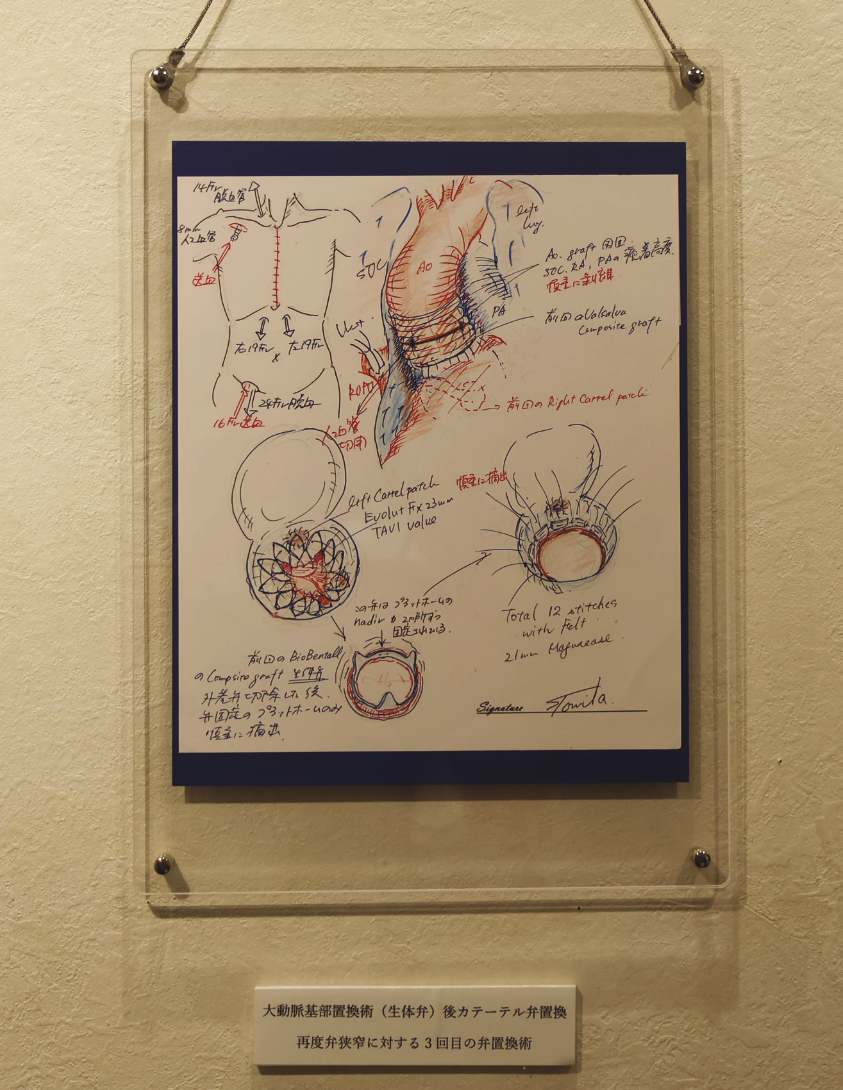 14Fr
脱血管
8mm
人工血管
送血
右19Fr
左19Fr
24Fr脱血
16Fr送血
SVC
Ao
left
lung.
PA
Ao. graft 周囲
SVC. RA, PAの癒着高度.
慎重に剥離
前回のValsalva
Composite graft
Vent.
前回のRight Carrel patch
left Carrel patch
Evolut FX 23mm
TAVI valve
慎重に摘出
この弁は プラットホームの
nadir が 2ヶ所ずつ
固定されている.
前回の BioBentall
の Composite graft
弁固定の プラットホームのみ
慎重に摘出.
Total 12 stitches
with Felt
21mm Magna ease.
Signature Tomita.
大動脈基部置換術（生体弁）後カテーテル弁置換
再度弁狭窄に対する3回目の弁置換術